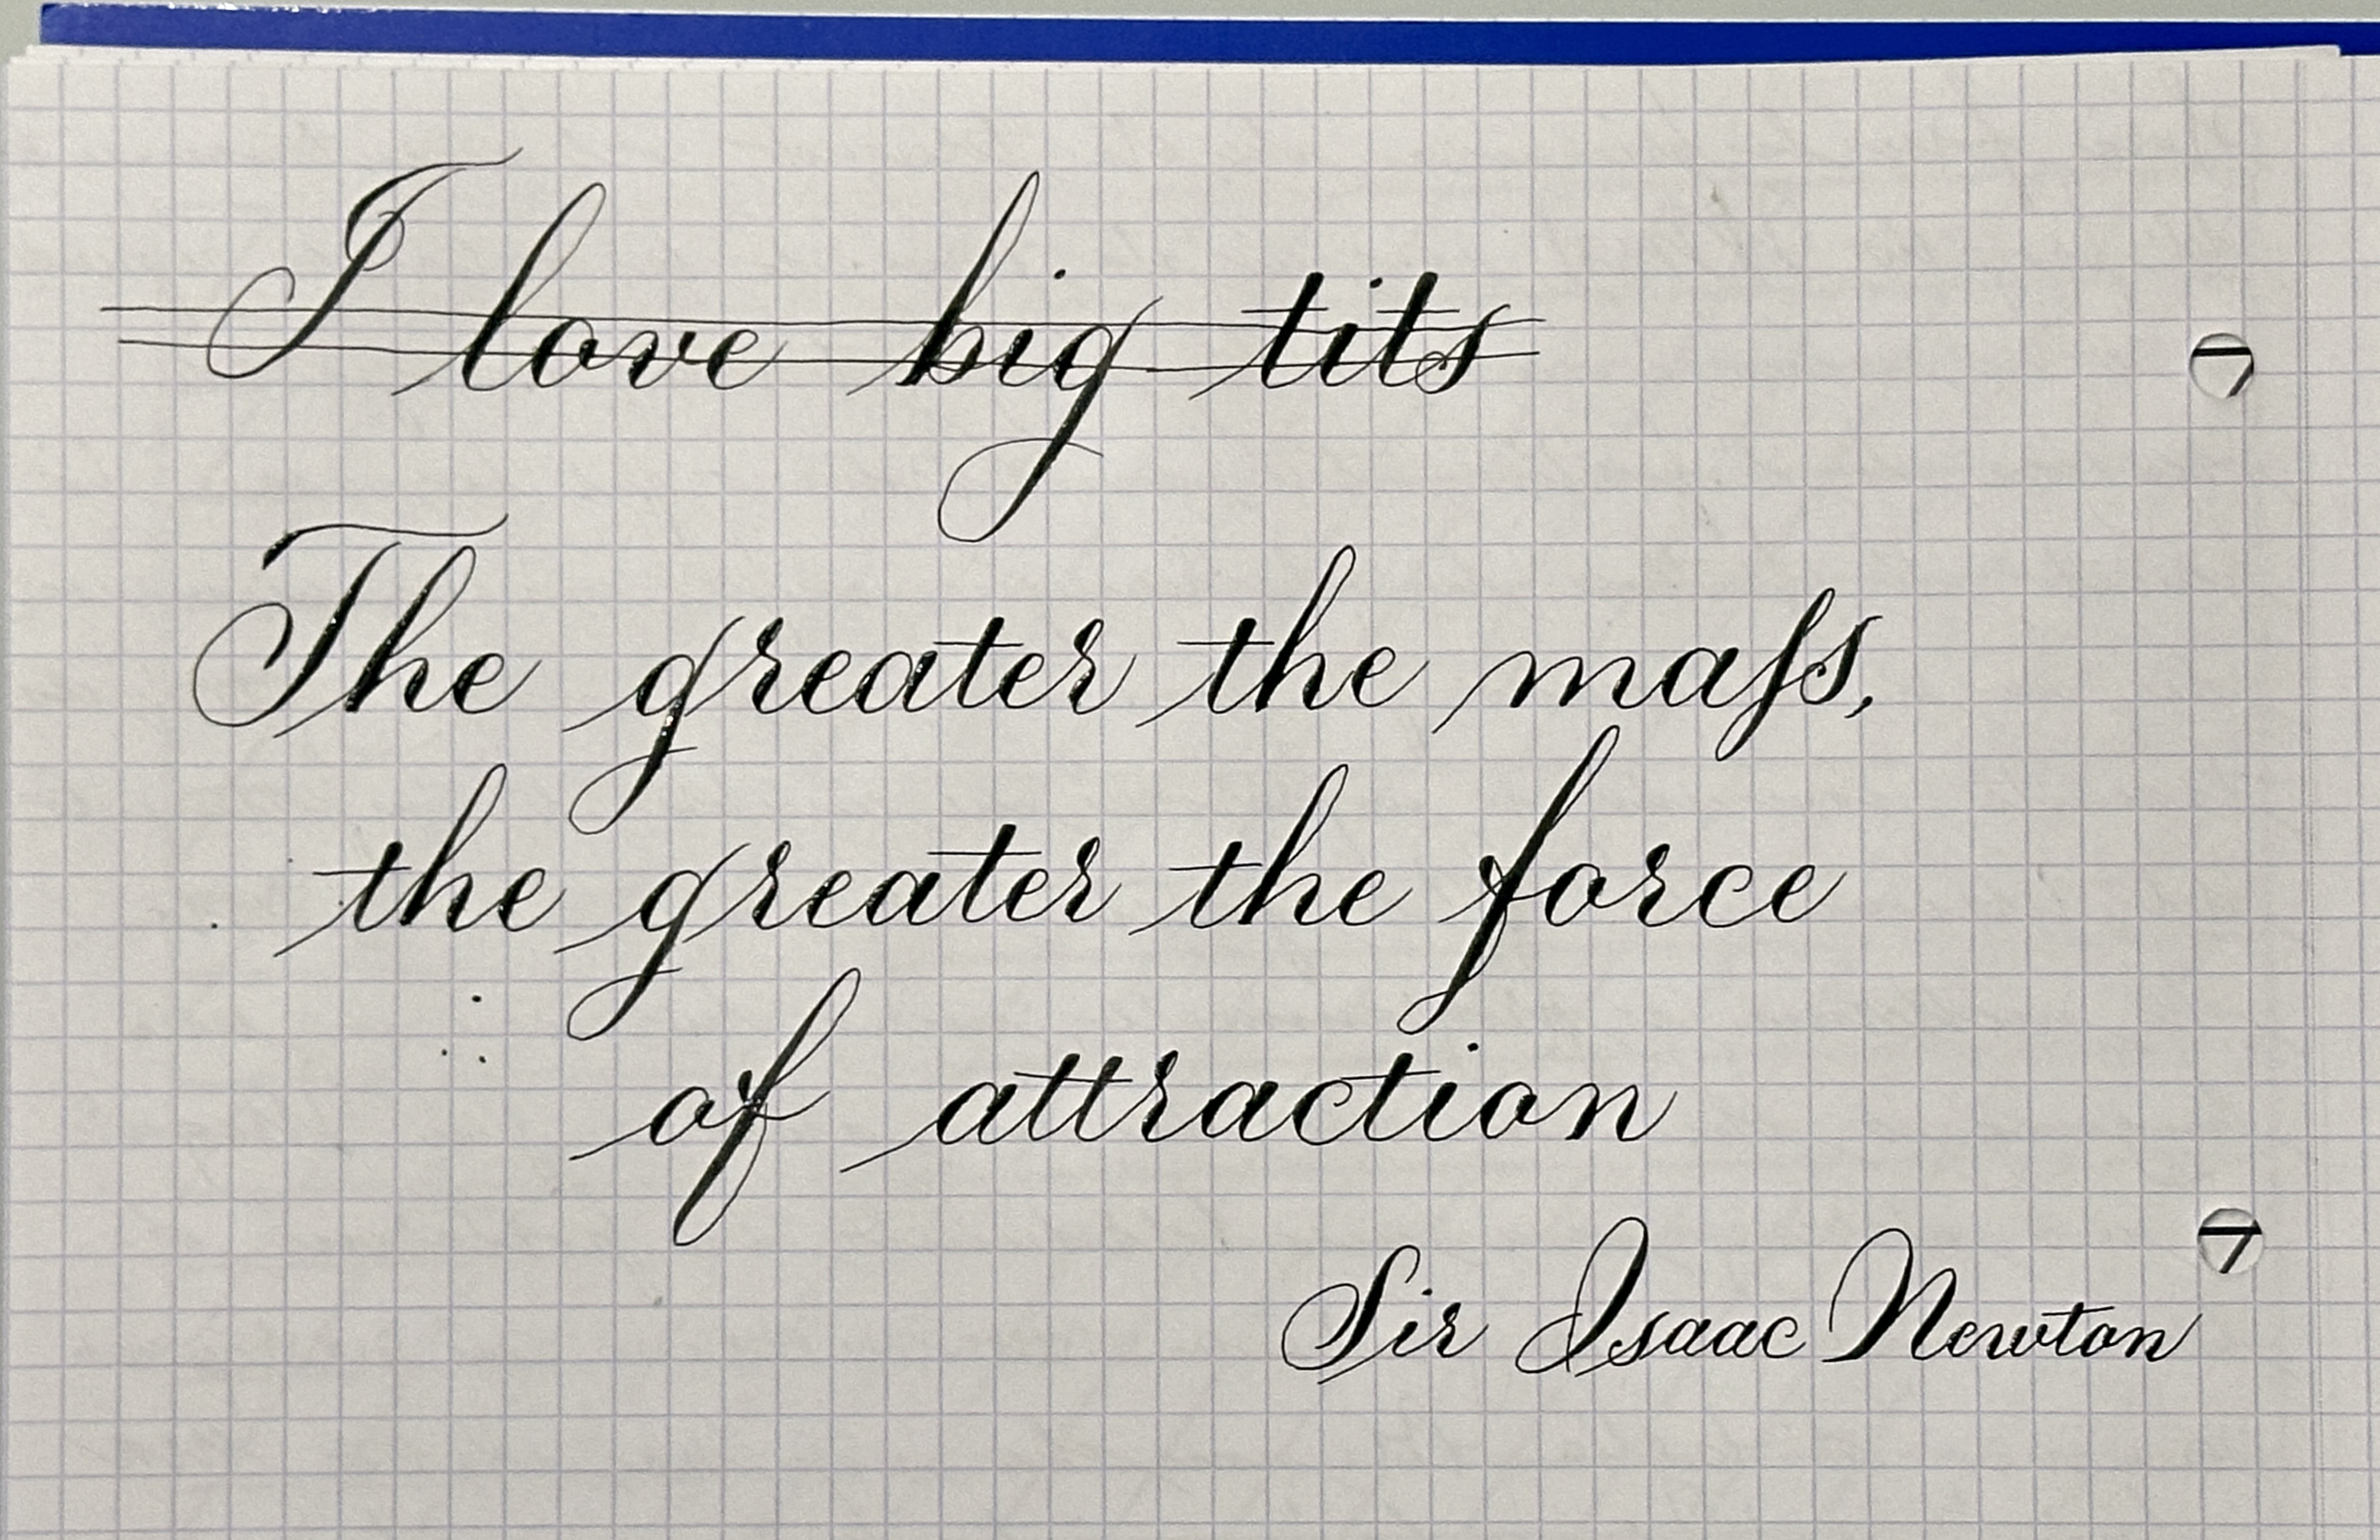 I love big tits
The greater the maſs,
the greater the force
of attraction
Sir Isaac Newton